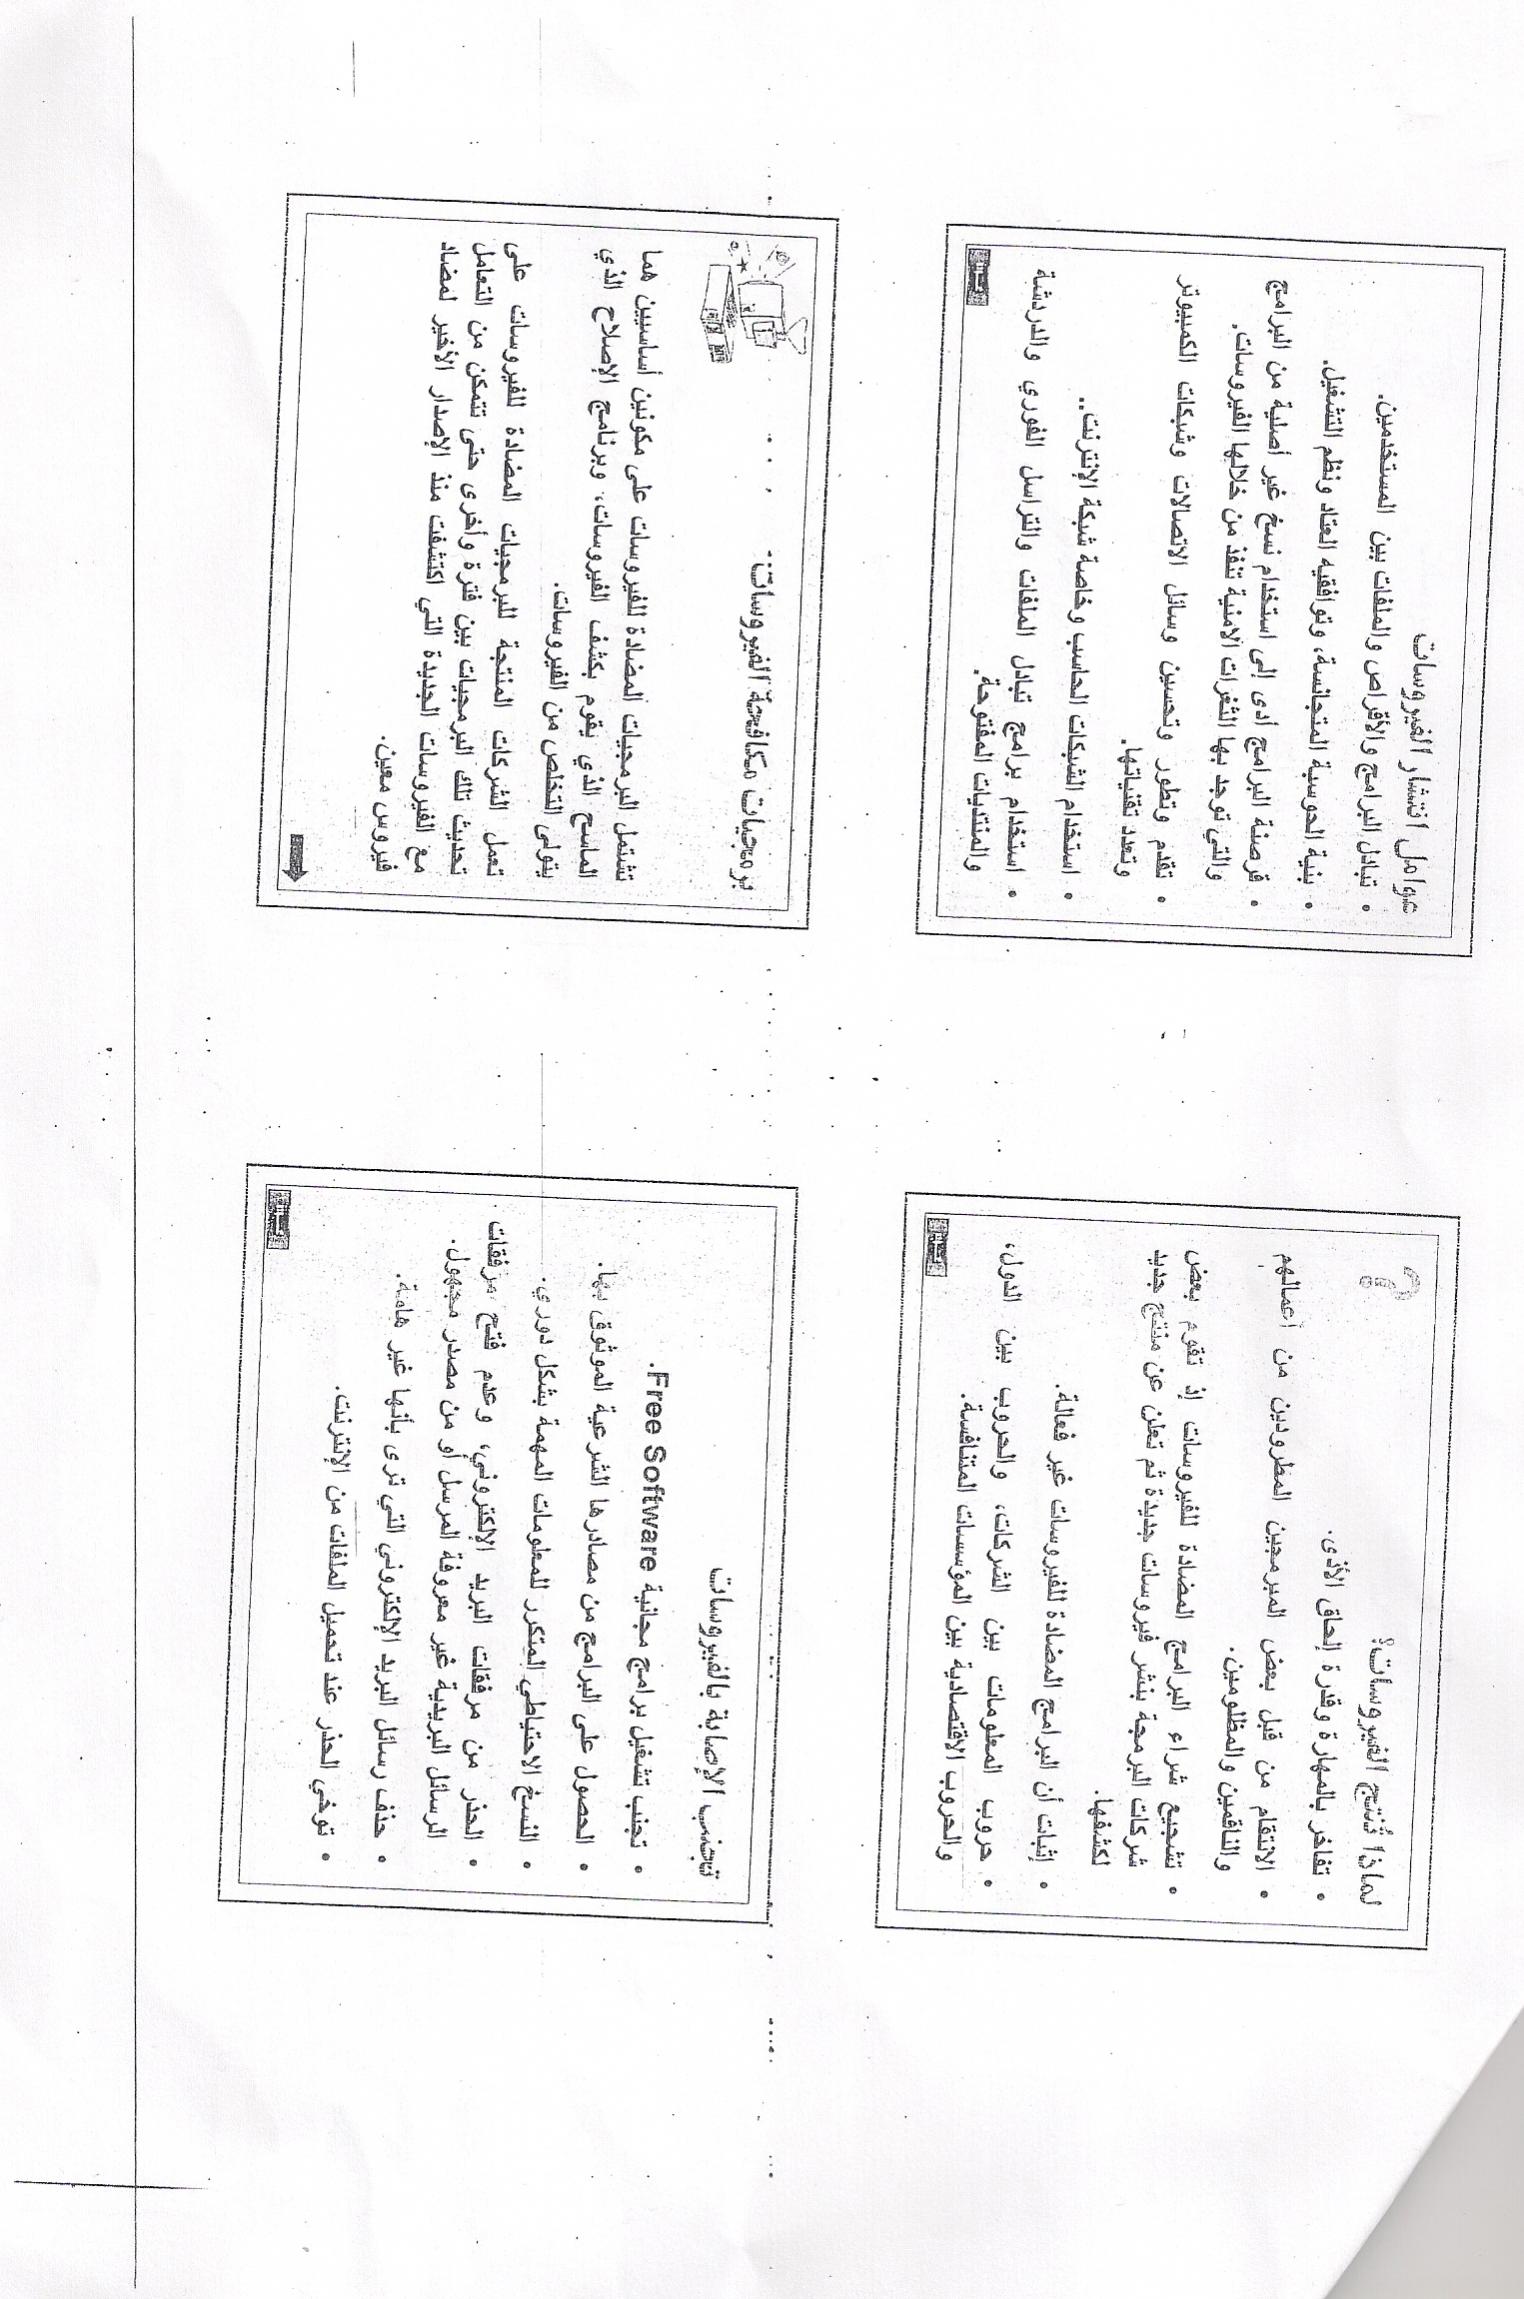 لماذا تُنتج الفيروسات؟
• تفاخر بالمهارة وقدرة إلحاق الأذى.
• الانتقام من قبل بعض المبرمجين المطرودين من أعمالهم
والناقمين والمظلومين.
• تشجيع شراء البرامج المضادة للفيروسات إذ تقوم بعض
شركات البرمجة بنشر فيروسات جديدة ثم تعلن عن منتج جديد
لكشفها.
• إثبات أن البرامج المضادة للفيروسات غير فعالة.
• حروب المعلومات بين الشركات، والحروب بين الدول،
والحروب الاقتصادية بين المؤسسات المتنافسة.
عوامل انتشار الفيروسات
• تبادل البرامج والأقراص والملفات بين المستخدمين.
• بنية الحوسبة المتجانسة، وتوافقيه العتاد ونظم التشغيل.
• قرصنة البرامج أدى إلى استخدام نسخ غير أصلية من البرامج
والتي توجد بها الثغرات الأمنية تنفذ من خلالها الفيروسات.
• تقدم وتطور وتحسين وسائل الاتصالات وشبكات الكمبيوتر
وتعدد تقنياتها.
• استخدام الشبكات الحاسب وخاصة شبكة الإنترنت..
• استخدام برامج تبادل الملفات والتراسل الفوري والدردشة
والمنتديات المفتوحة.
تجنب الإصابة بالفيروسات
• تجنب تشغيل برامج مجانية Free Software.
• الحصول على البرامج من مصادرها الشرعية الموثوق بها.
• النسخ الاحتياطي المتكرر للمعلومات المهمة بشكل دوري.
• الحذر من مرفقات البريد الإلكتروني، وعدم فتح مرفقات
الرسائل البريدية غير معروفة المرسل أو من مصدر مجهول.
• حذف رسائل البريد الإلكتروني التي ترى بأنها غير هامة.
• توخي الحذر عند تحميل الملفات من الإنترنت.
برمجيات مكافحة الفيروسات:
تشتمل البرمجيات المضادة للفيروسات على مكونين أساسيين هما
الماسح الذي يقوم بكشف الفيروسات، وبرنامج الإصلاح الذي
يتولى التخلص من الفيروسات.
تعمل الشركات المنتجة للبرمجيات المضادة للفيروسات على
تحديث تلك البرمجيات بين فترة وأخرى حتى تتمكن من التعامل
مع الفيروسات الجديدة التي اكتشفت منذ الإصدار الأخير لمضاد
فيروس معين.